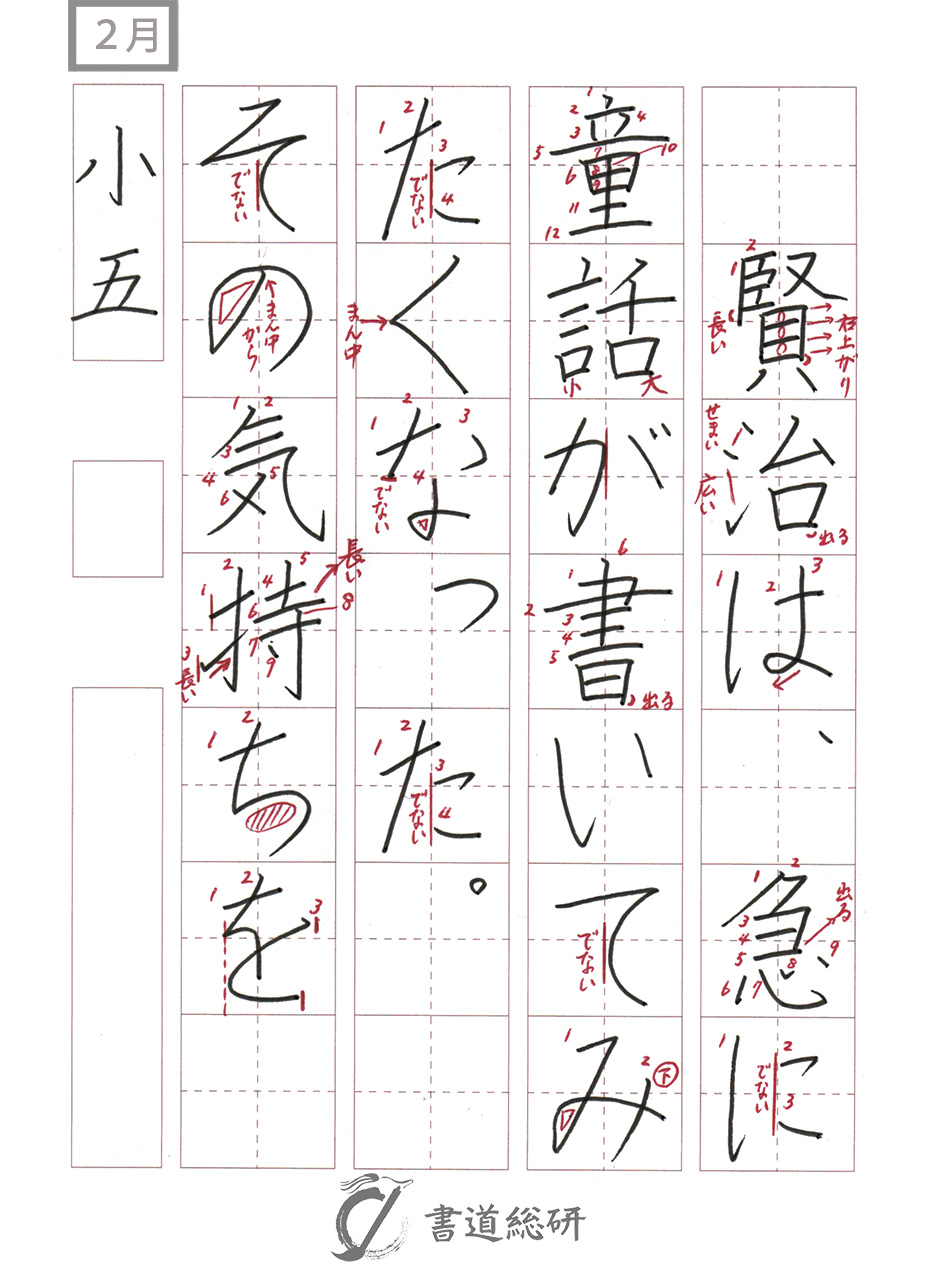 2月
賢治は、急に
長い
右上がり
せまい
広い
出る
出る
でない
童話が書いてみ
小
大
出る
でない
下
たくなった。
でない
まん中
でない
でない
その気持ちを
でない
まん中から
長い
長い
小五
書道総研